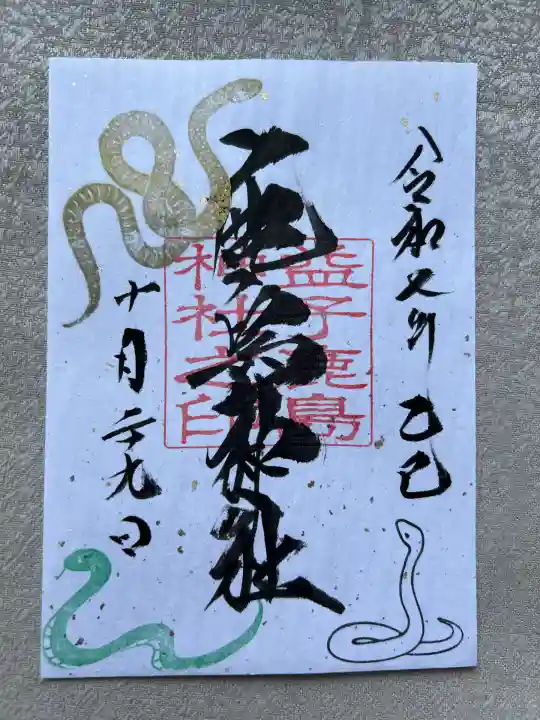 令和七年 己巳
鹿島神社
益子鹿島
神社之印
十月二十九日